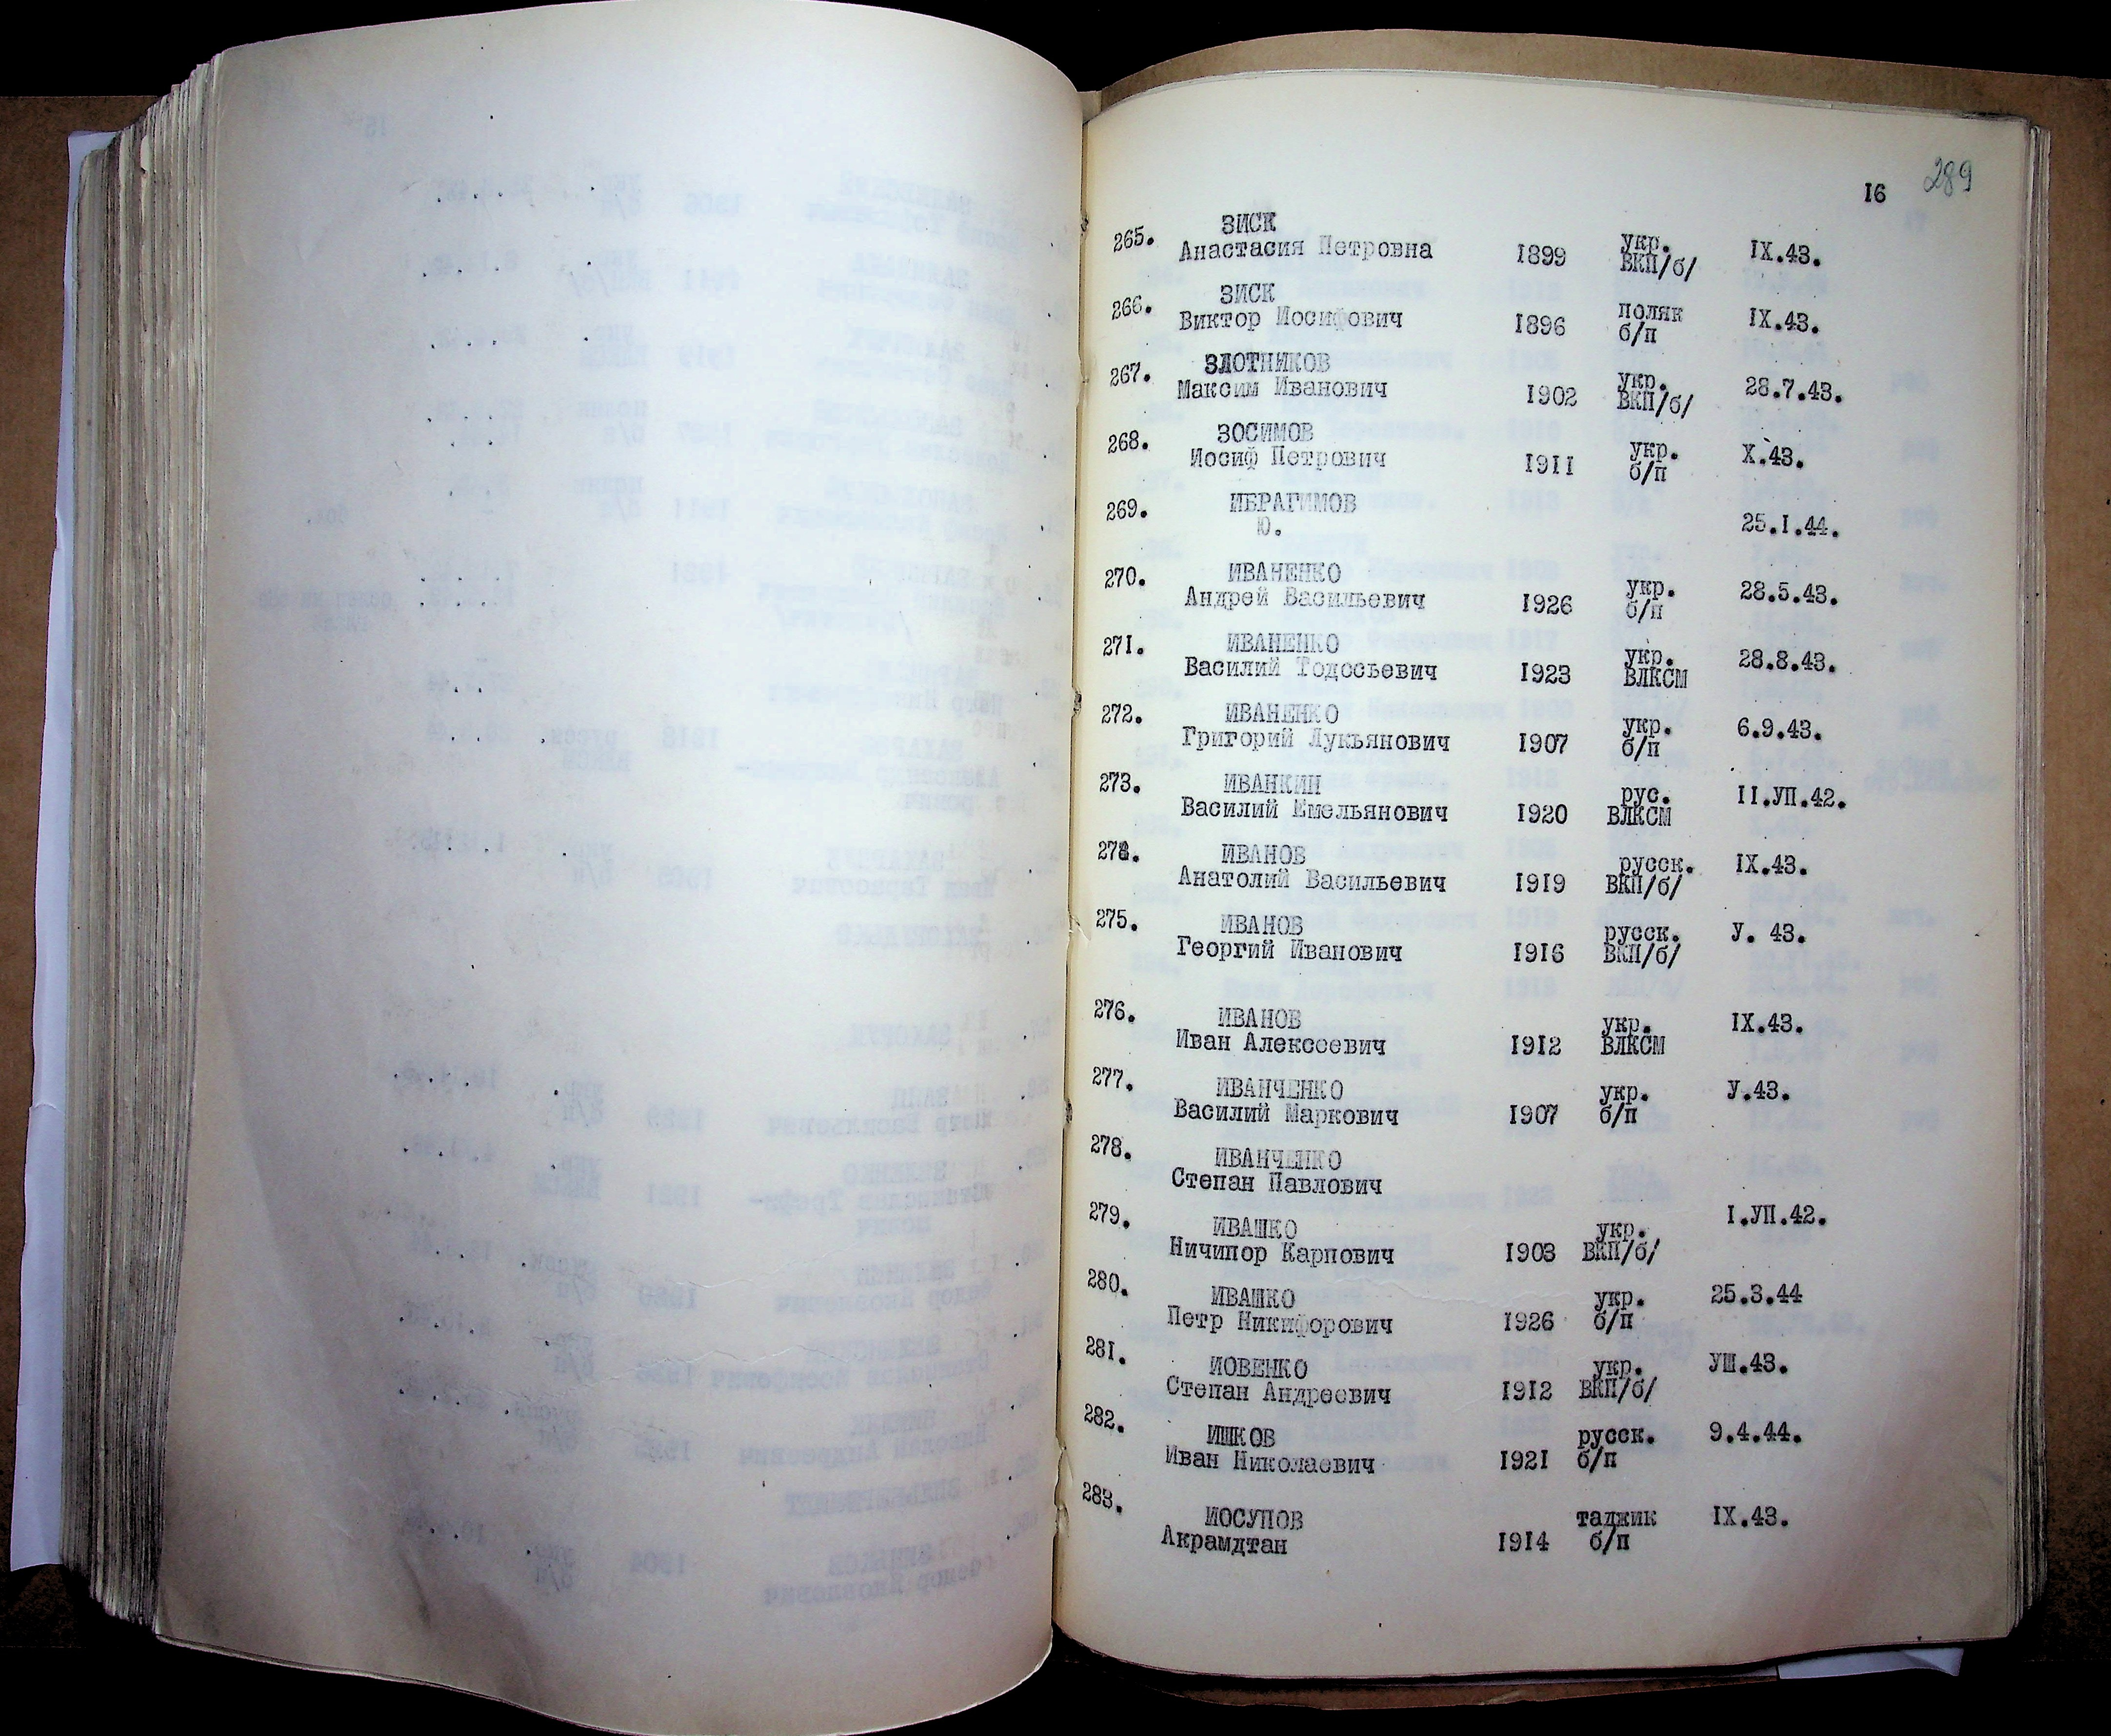 289
I6
265. ЗИСК
Анастасия Петровна I899 укр. ВКП/б/ IX.43.
266. ЗИСК
Виктор Иосифович I896 поляк б/п IX.43.
267. ЗЛОТНИКОВ
Максим Иванович I902 укр. ВКП/б/ 28.7.43.
268. ЗОСИМОВ
Иосиф Петрович I9II укр. б/п X.43.
269. ИБРАГИМОВ
Ю. 25.I.44.
270. ИВАНЕНКО
Андрей Васильевич I926 укр. б/п 28.5.43.
271. ИВАНЕНКО
Василий Тодосьевич I923 укр. ВЛКСМ 28.8.43.
272. ИВАНЕНКО
Григорий Лукъянович I907 укр. б/п 6.9.43.
273. ИВАНКИН
Василий Емельянович I920 рус. ВЛКСМ II.УП.42.
274. ИВАНОВ
Анатолий Васильевич I9I9 русск. ВКП/б/ IX.43.
275. ИВАНОВ
Георгий Иванович I9I6 русск. ВКП/б/ У. 43.
276. ИВАНОВ
Иван Алексеевич I9I2 укр. ВЛКСМ IX.43.
277. ИВАНЧЕНКО
Василий Маркович I907 укр. б/п У.43.
278. ИВАНЧЕНКО
Степан Павлович
279. ИВАШКО
Ничипор Карпович I903 укр. ВКП/б/ I.УП.42.
280. ИВАШКО
Петр Никифорович I926 укр. б/п 25.3.44
281. ИОВЕНКО
Степан Андреевич I9I2 укр. ВКП/б/ УШ.43.
282. ИШКОВ
Иван Николаевич I92I русск. б/п 9.4.44.
283. ИОСУПОВ
Акрамдтан I9I4 таджик б/п IX.43.